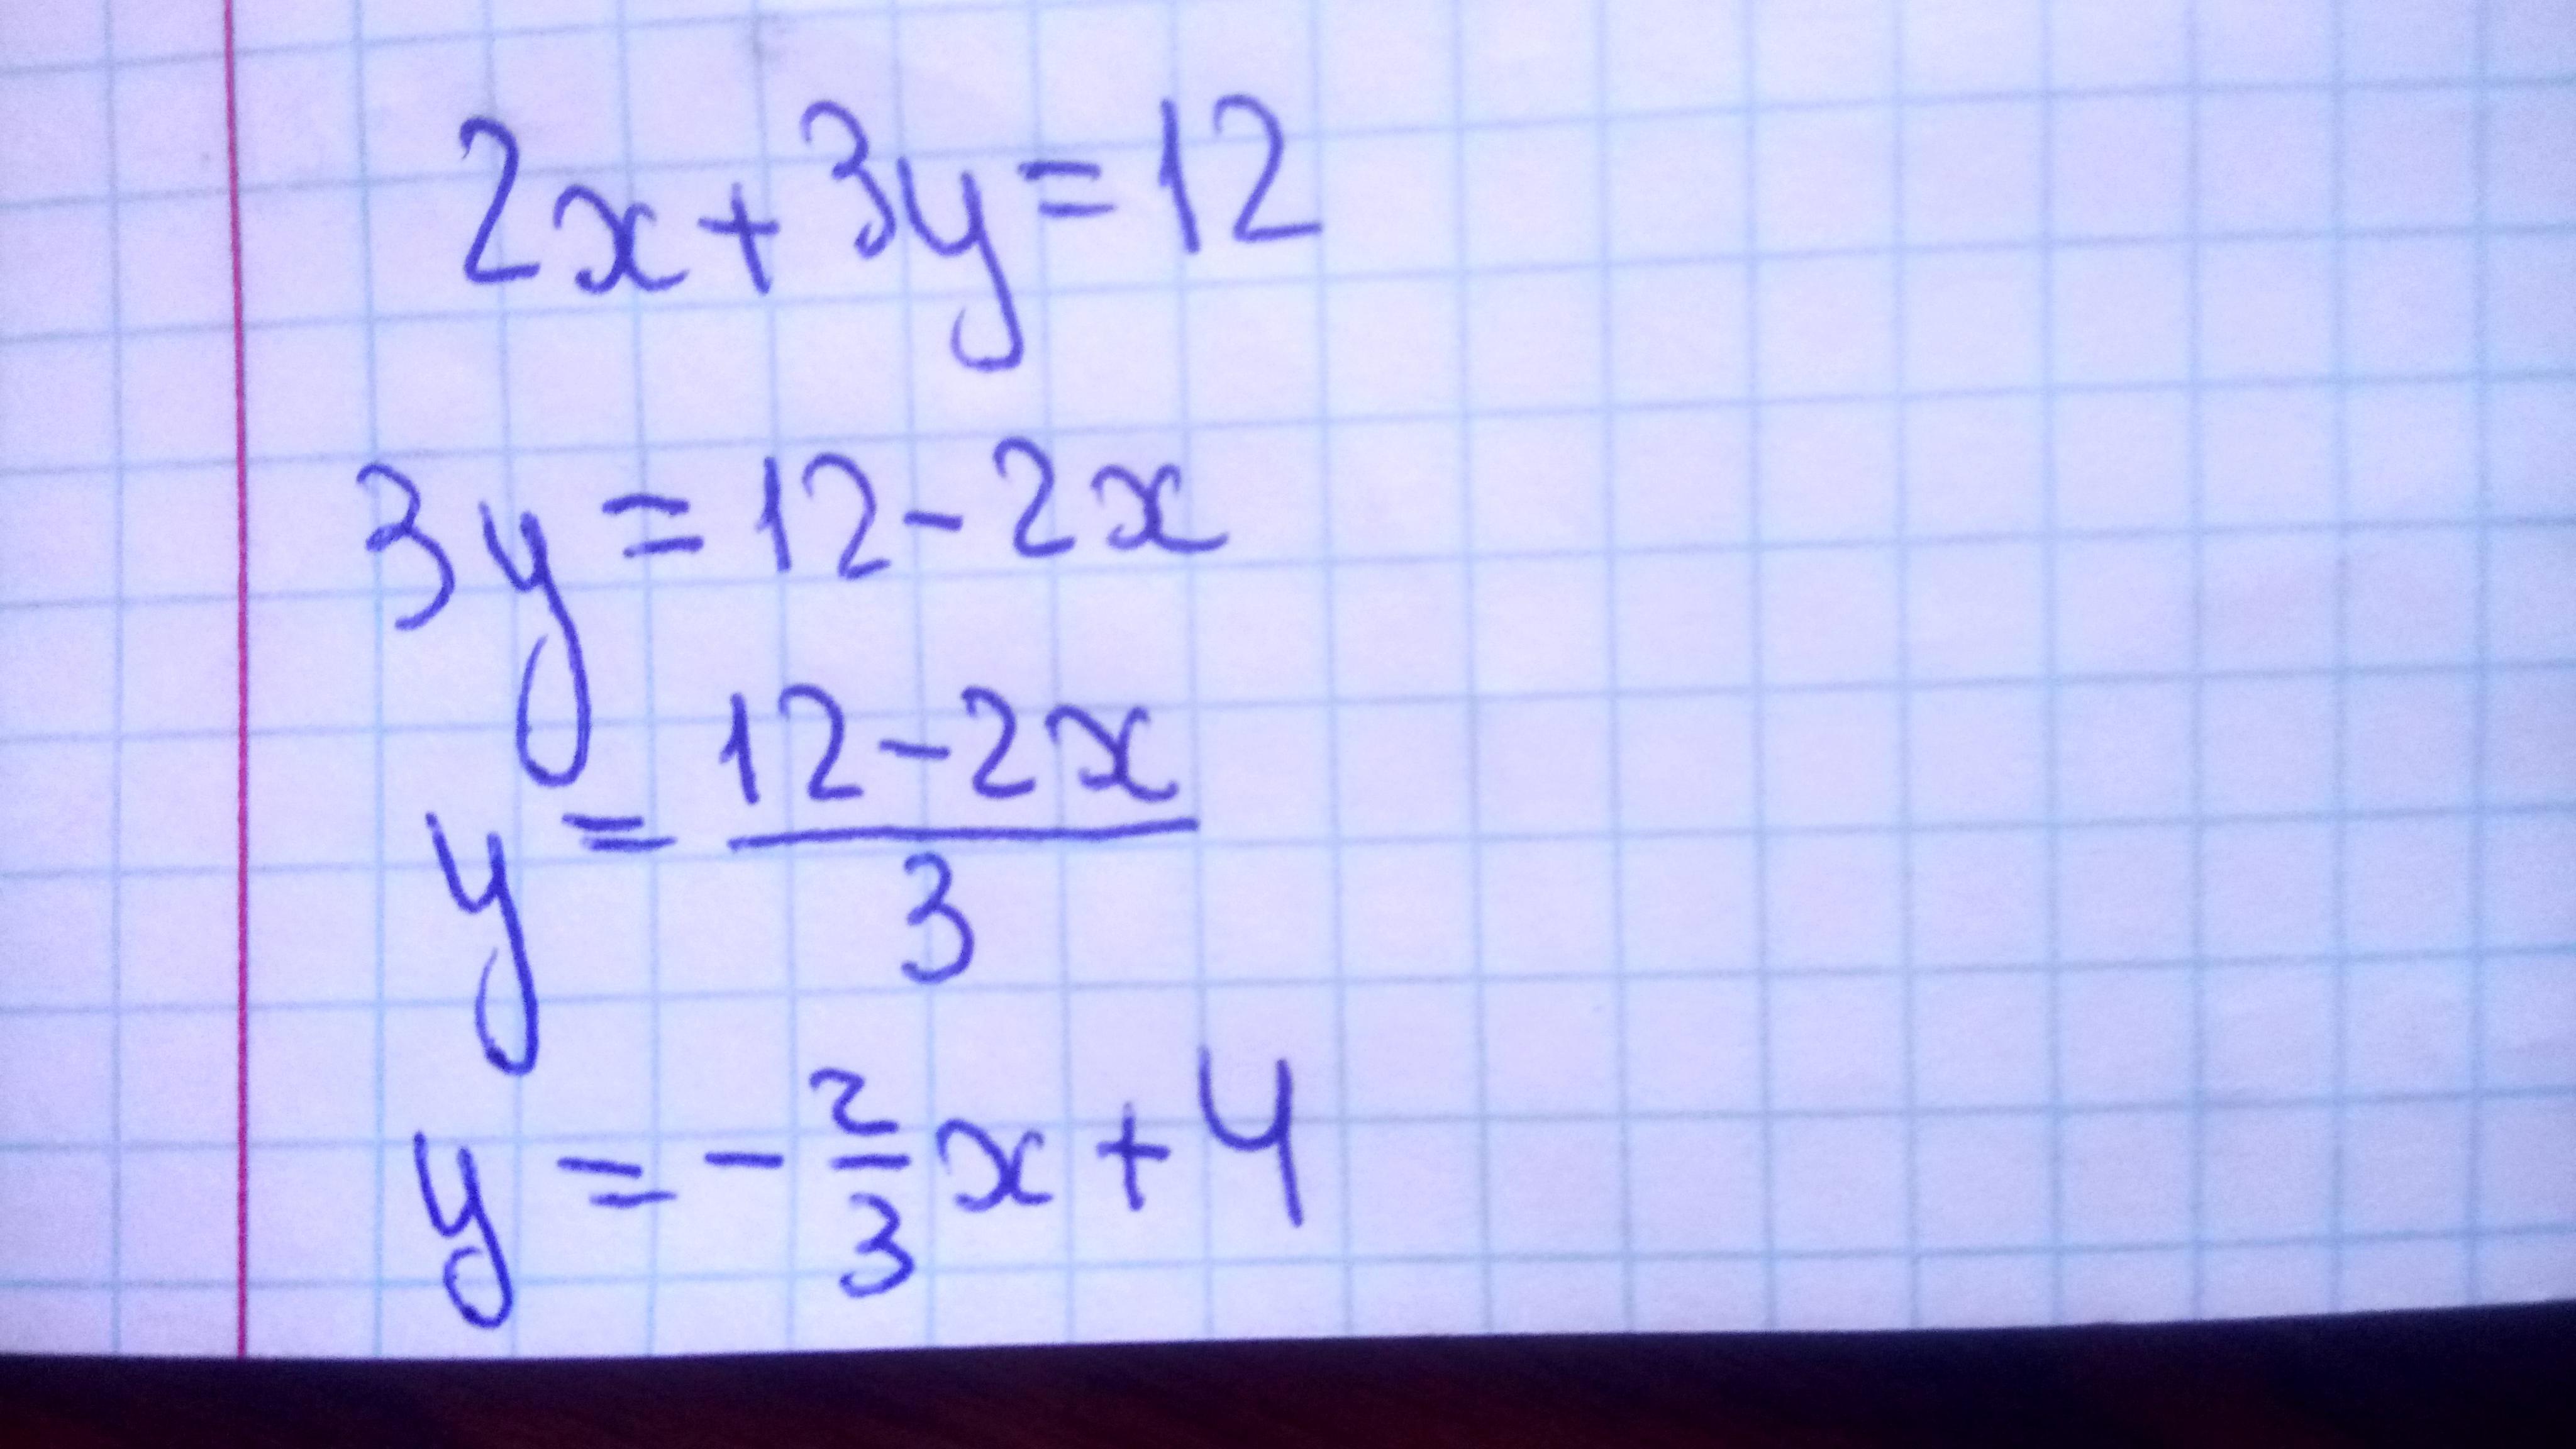 2x+3y=12
3y=12-2x
y=\frac{12-2x}{3}
y=-\frac{2}{3}x+4